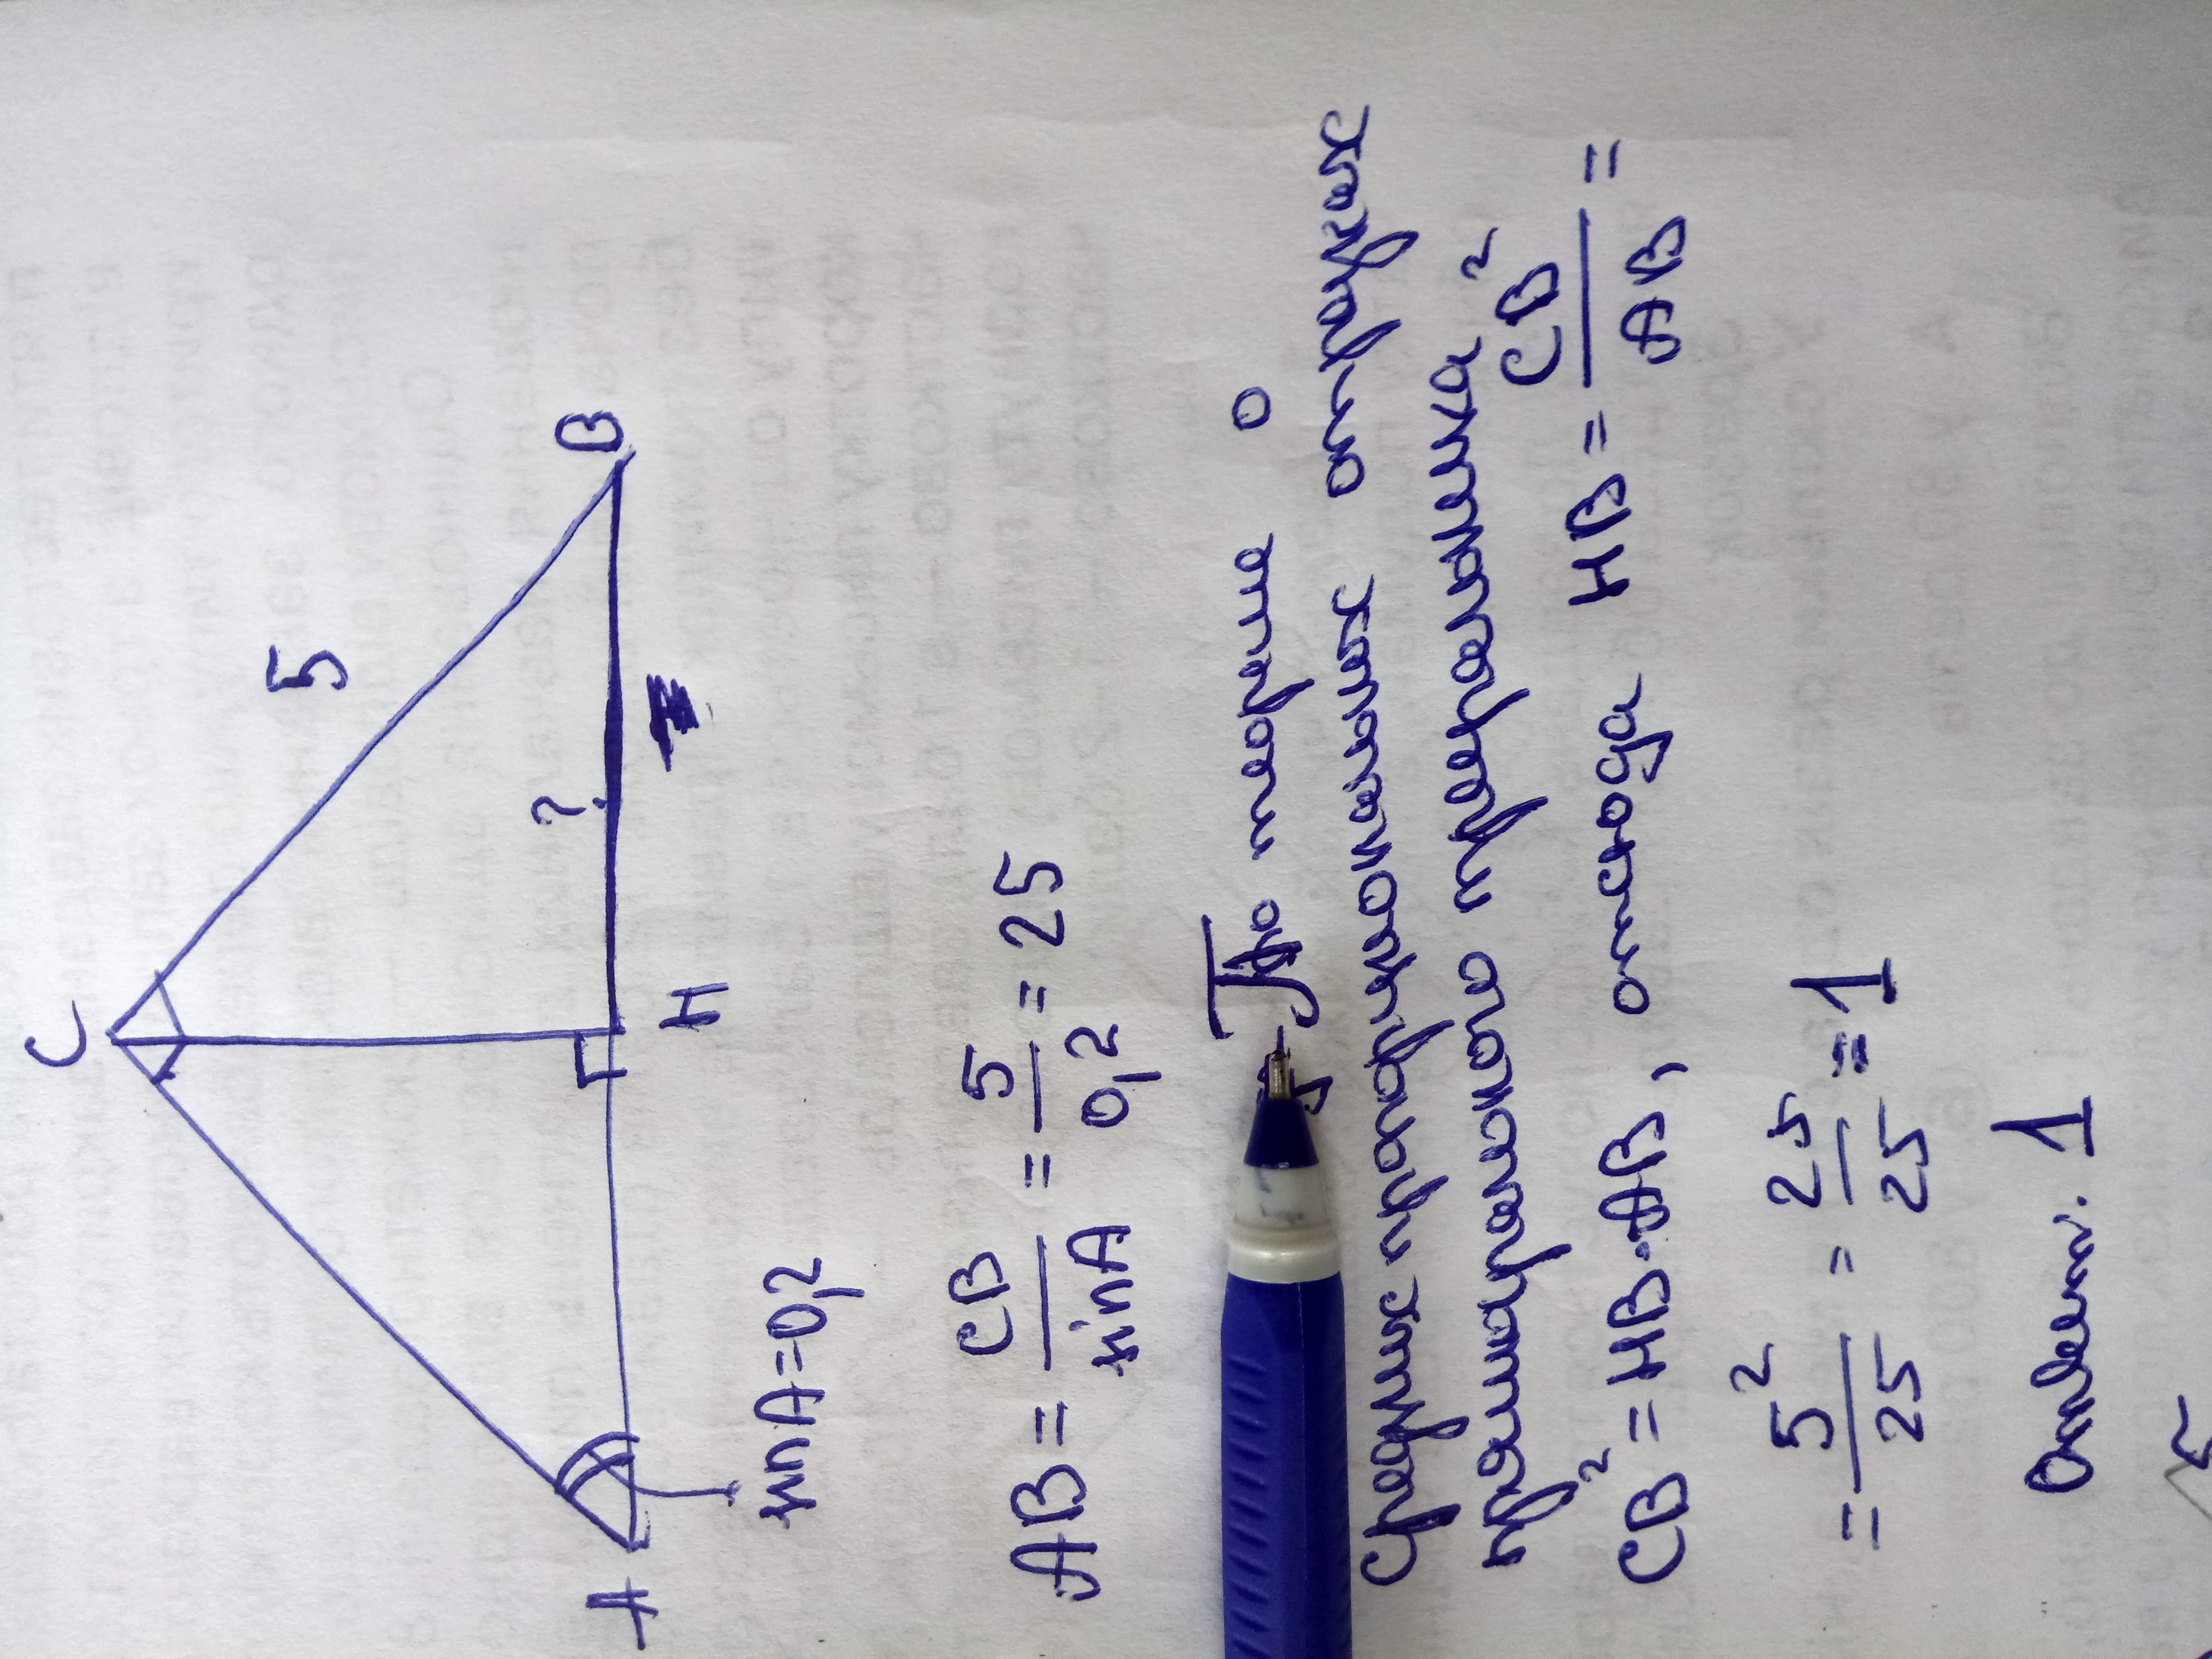 C
5
A
H
?
B
sin A = 0,2
AB = CB/sin A = 5/0,2 = 25
По теореме о
средних пропорциональных отрезках
прямоугольного треугольника
CB² = HB·AB, отсюда HB = CB²/AB =
= 5²/25 = 25/25 = 1
Ответ: 1